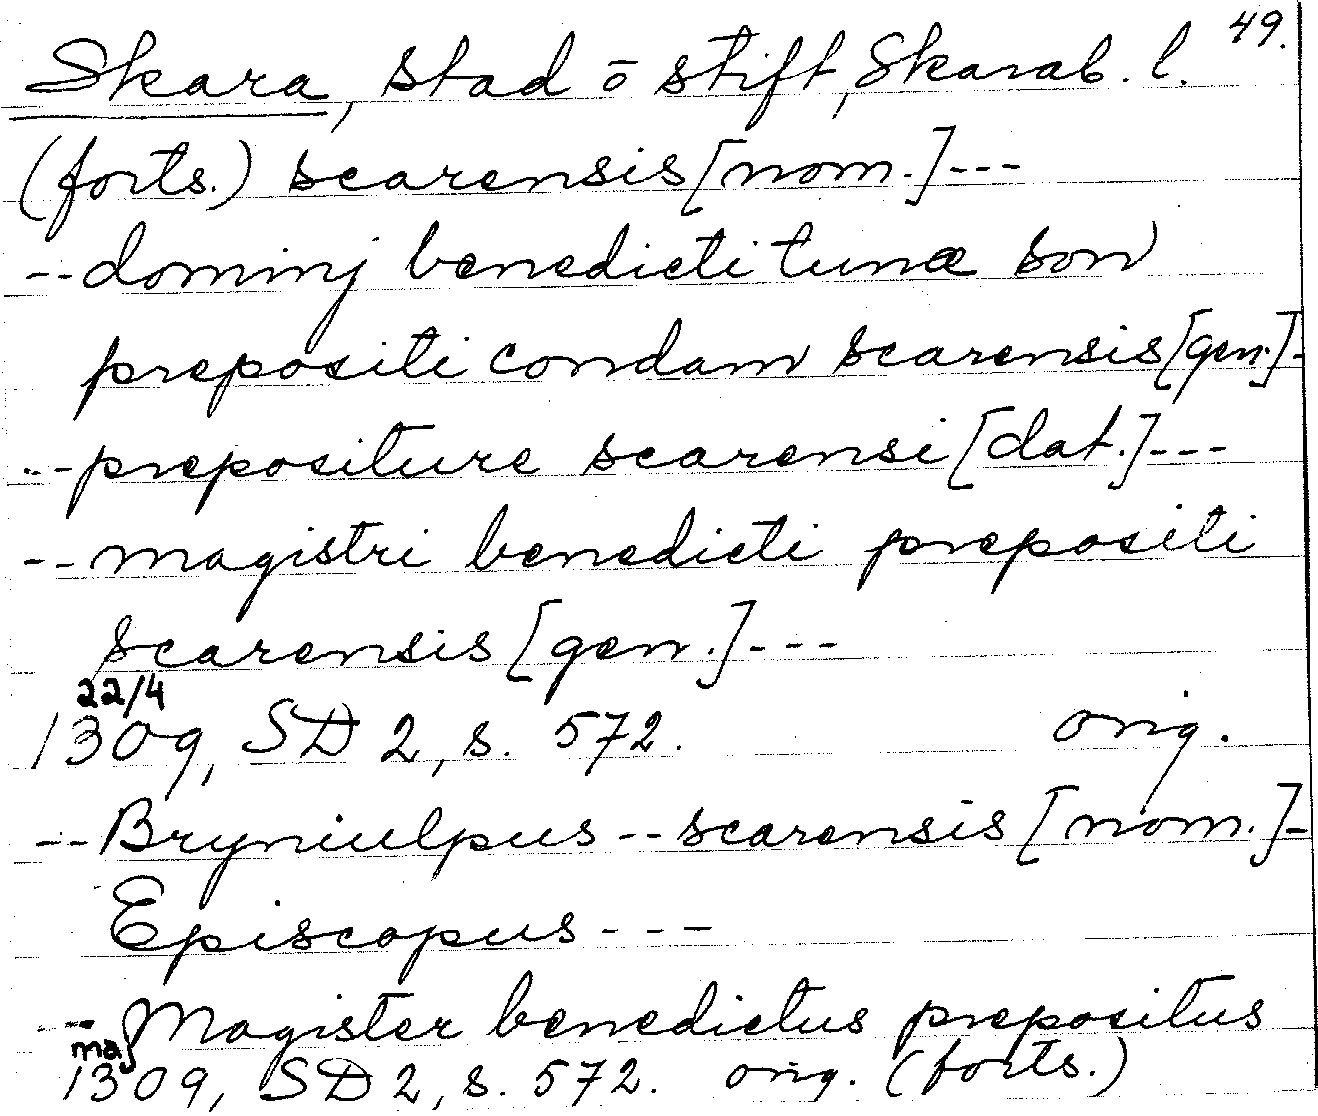 49.
Skara, stad ō stift, Skarab. l.
(forts.) scarensis [nom.] ---
-- dominj benedicti tunæ son
prepositi condam scarensis [gen.] -
-- prepositure scarensi [dat.] ---
-- magistri benedicti prepositi
scarensis [gen.] ---
22/4
1309, SD 2, s. 572. orig.
-- Bryniulpus -- scarensis [nom.] -
Episcopus ---
-- Magister benedictus prepositus
maj
1309, SD 2, s. 572. orig. (forts.)